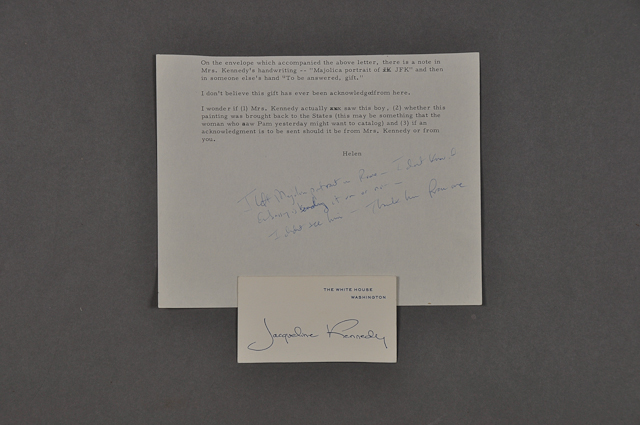 On the envelope which accompanied the above letter, there is a note in
Mrs. Kennedy's handwriting -- "Majolica portrait of JFK" and then
in someone else's hand "To be answered, gift."
I don't believe this gift has ever been acknowledged from here.
I wonder if (1) Mrs. Kennedy actually saw this boy, (2) whether this
painting was brought back to the States (this may be something that the
woman who saw Pam yesterday might want to catalog) and (3) if an
acknowledgment is to be sent should it be from Mrs. Kennedy or from
you.
Helen
I left Majolica portrait in Rome — I don't know if
sending it on or not —
I didn't see him — Thank him
THE WHITE HOUSE
WASHINGTON
Jacqueline Kennedy